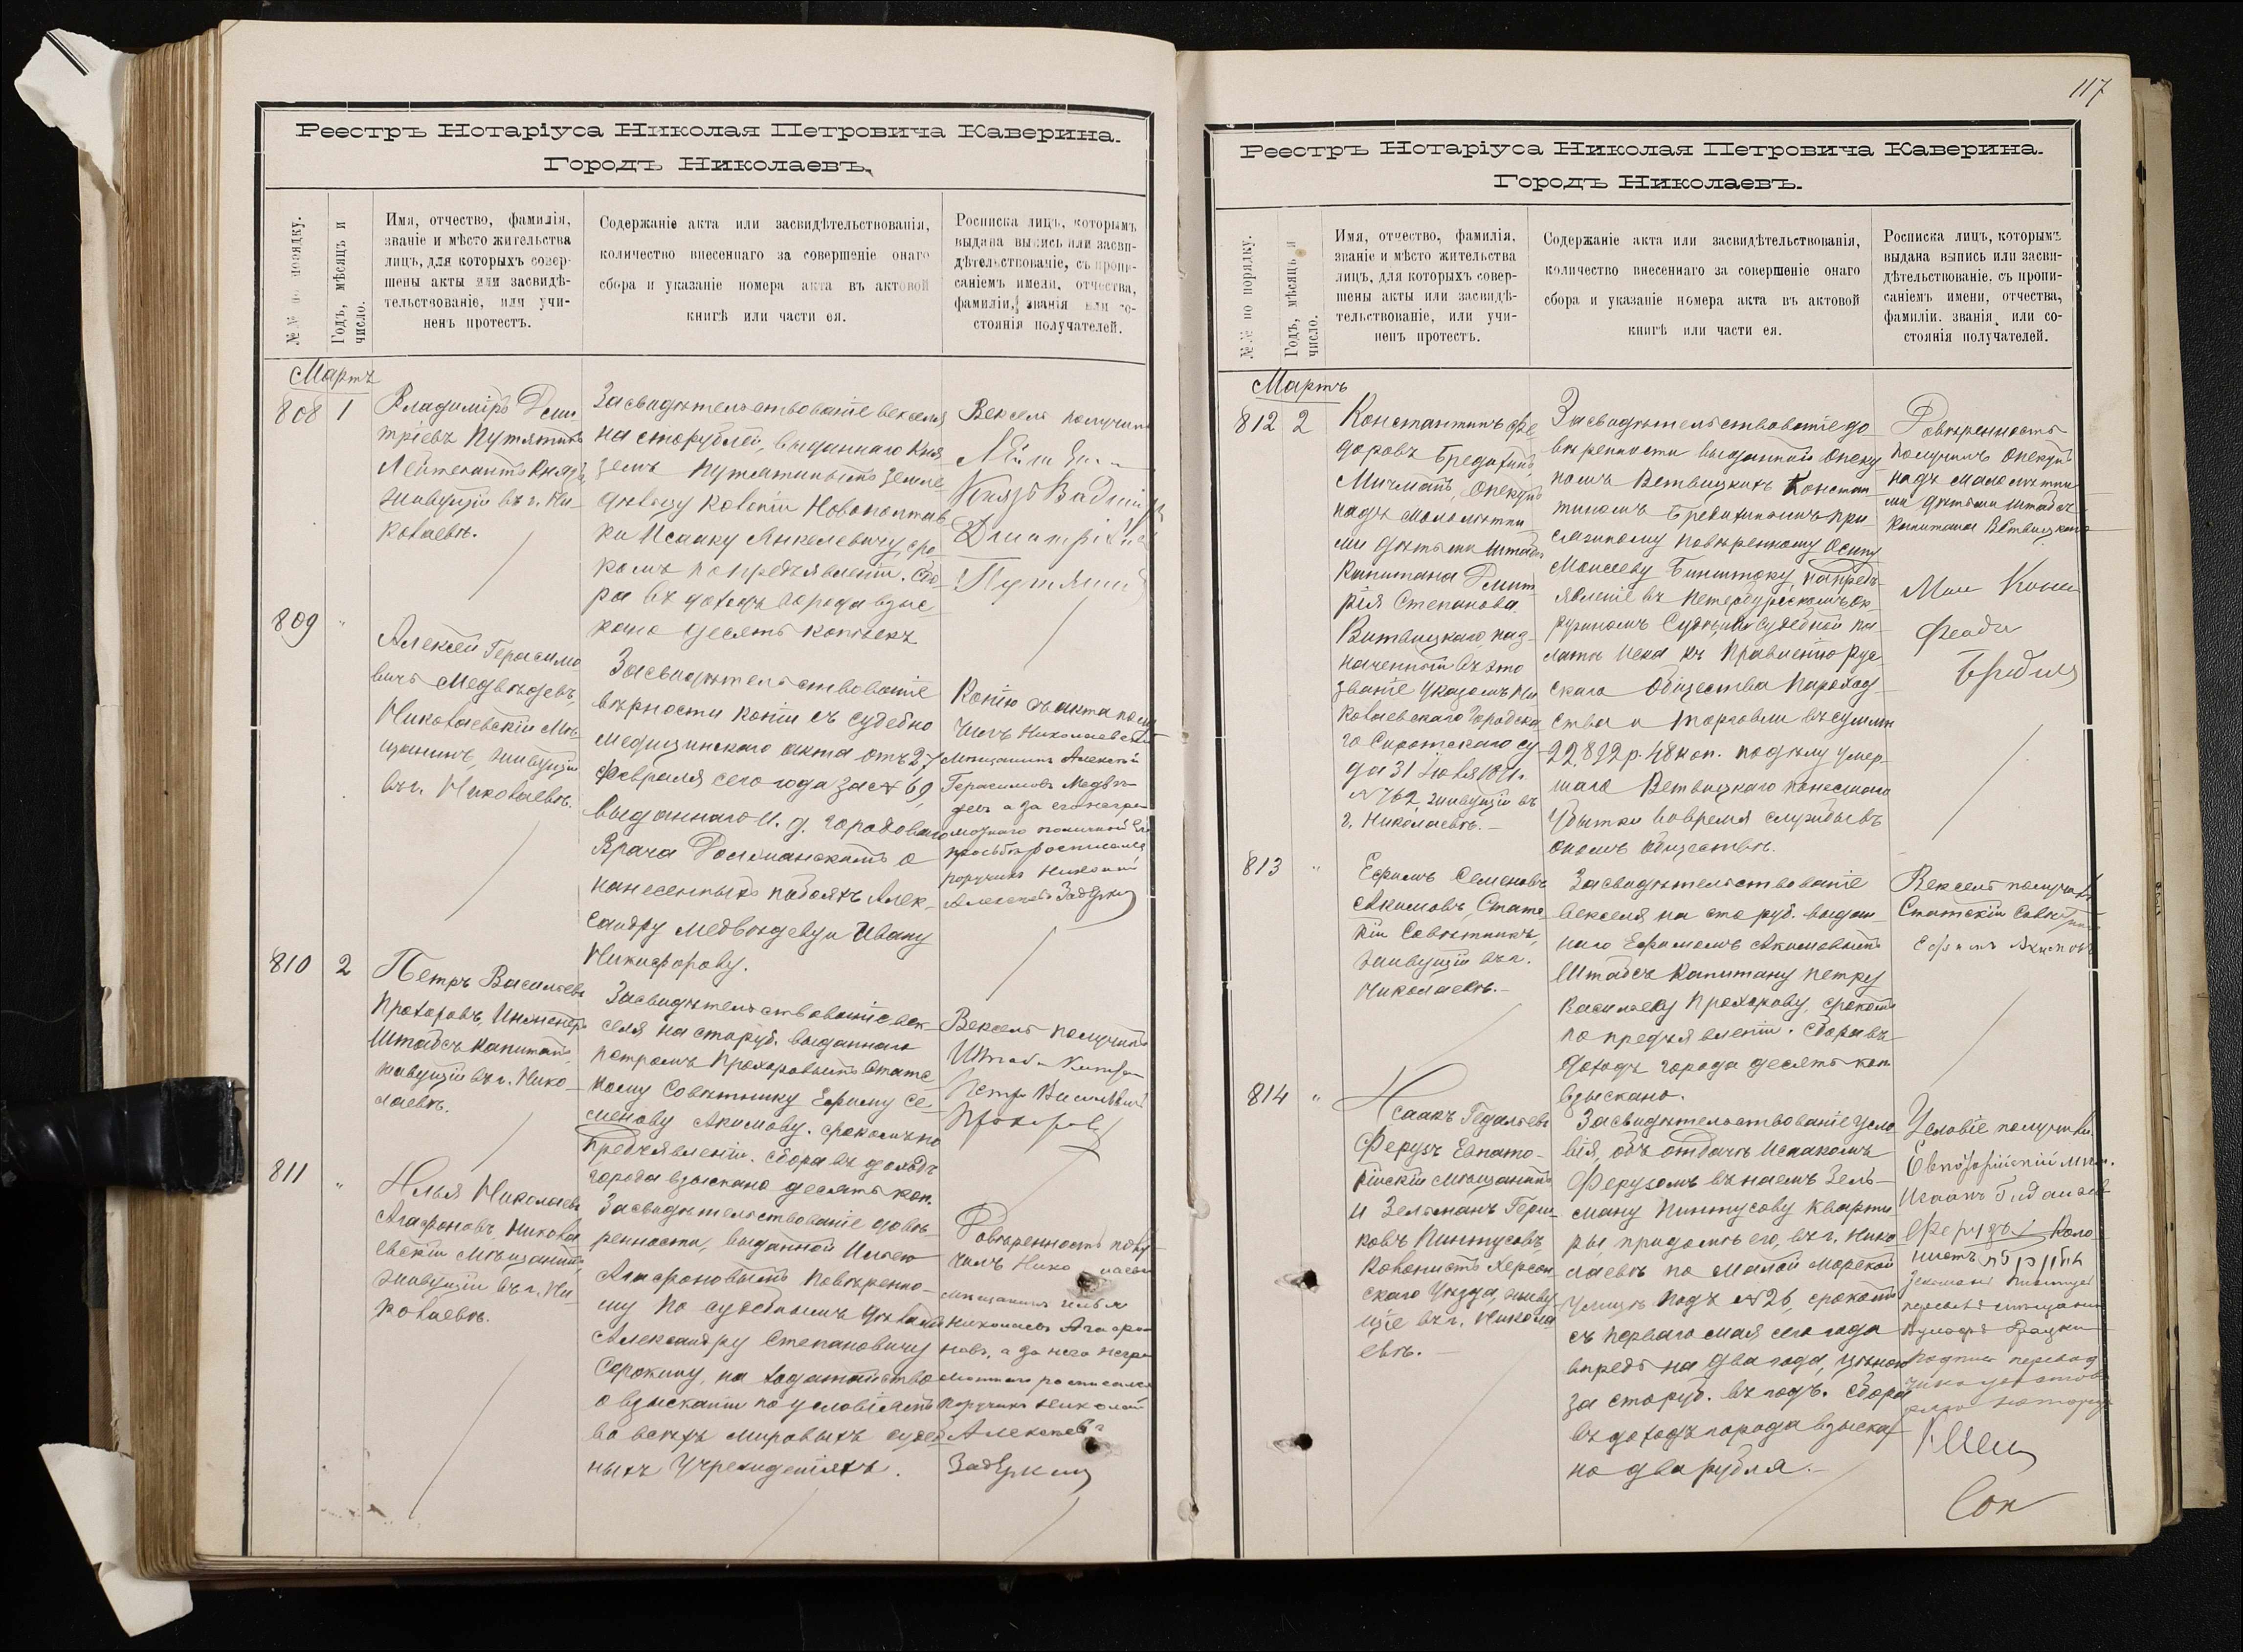 Реестръ Нотаріуса Николая Петровича Каверина.
Городъ Николаевъ.
№№ по порядку.
Годъ, мѣсяцъ и число.
Имя, отчество, фамилія,
званіе и мѣсто жительства
лицъ, для которыхъ совер-
шены акты или засвидѣ-
тельствованіе, или учи-
ненъ протестъ.
Содержаніе акта или засвидѣтельствованія,
количество внесеннаго за совершеніе онаго
сбора и указаніе номера акта въ актовой
книгѣ или части ея.
Росписка лицъ, которымъ
выдана выпись или засви-
дѣтельствованіе, съ пропи-
саніемъ имени, отчества,
фамиліи, званія или со-
стоянія получателей.
Мартъ
808 1
Владиміръ Дми-
тріевъ Путятинъ
Лейтенантъ Князь,
живущій въ г. Ни-
колаевѣ.
Засвидѣтельствованіе векселя
на сто рублей, выданнаго Кня-
земъ Путятинымъ Земле-
дѣльцу колоніи Новополтав-
ки Исааку Янкелевичу, сро-
комъ по предъявленіи. Сбо-
ра въ доходъ города взыс-
кано десять копѣекъ
Вексель получилъ
Князь
Путятинъ
809 "
Алексей Герасимо
вичъ Медвѣдевъ,
Николаевскій Мѣ-
щанинъ, живущій
въ г. Николаевѣ.
Засвидѣтельствованіе
вѣрности копіи съ судебно
медицинскаго акта отъ 27
Февраля сего года за № 69,
выданнаго И. д. Городоваго
Врача о
нанесенныхъ побояхъ Алек-
сандру Медвѣдеву и Ивану
Никифорову.
Копію съ акта полу
чилъ Николаевскій
мѣщанинъ Алексей
Герасимовъ Медвѣ-
девъ а за его негра-
мотнаго по личной его
просьбѣ росписался
поручикъ Николай
810 2
Петръ Васильевъ
Прохоровъ, Инженеръ
Штабсъ Капитанъ,
живущій въ г. Нико-
лаевѣ.
Засвидѣтельствованіе век-
селя на сто руб. выданнаго
Петромъ Прохоровымъ Статс
кому Совѣтнику Ефиму Се-
менову Акимову, срокомъ по
предъявленіи. Сбора въ доходъ
города взыскано десять коп.
Вексель получилъ
Штабсъ Капитан
Петръ Васильевичъ
Прохоровъ
811 "
Илья Николаевъ
Агафоновъ, Никола
евскій мѣщанинъ,
живущій въ г. Ни-
колаевѣ.
Засвидѣтельствованіе довѣ-
ренности, выданной Ильею
Агафоновымъ повѣренно-
му по судебнымъ дѣламъ
Александру Степановичу
Сорокину, на ходатайство
о взысканіи по условіямъ
во всѣхъ мировыхъ судеб
ныхъ Учрежденіяхъ.
Довѣренность полу
чилъ Николаевскій
мѣщанинъ Илья
Николаевъ Агафо
новъ, а за него негра
мотнаго росписался
поручикъ Николай
Алексѣевъ
117
Реестръ Нотаріуса Николая Петровича Каверина.
Городъ Николаевъ.
№№ по порядку.
Годъ, мѣсяцъ и число.
Имя, отчество, фамилія,
званіе и мѣсто жительства
лицъ, для которыхъ совер-
шены акты или засвидѣ-
тельствованіе, или учи-
ненъ протестъ.
Содержаніе акта или засвидѣтельствованія,
количество внесеннаго за совершеніе онаго
сбора и указаніе номера акта въ актовой
книгѣ или части ея.
Росписка лицъ, которымъ
выдана выпись или засви-
дѣтельствованіе. съ пропи-
саніемъ имени, отчества,
фамиліи. званія или со-
стоянія получателей.
Мартъ
812 2
Константинъ Фе
доровъ Бредихинъ
Мичманъ, Опекунъ
надъ малолѣтни-
ми дѣтьми Штабсъ
Капитана Дмит
рія Степанова
Витвицкаго, наз-
наченный въ это
званіе Указомъ Ни
колаевскаго Городска
го Сиротскаго су
да 31 Іюля
№ 762, живущій въ
г. Николаевѣ. —
Засвидѣтельствованіе до-
вѣренности выданной Опеку
номъ Ветвицкихъ Констан
тиномъ Бредихинымъ При-
сяжному повѣренному Осипу
Моисееву на предъ
явленіе въ Петербургскомъ Ок-
ружномъ Судѣ, или Судебной Па-
латѣ Иска къ Правленію Рус-
скаго Общества Пароход-
ства и торговли въ суммѣ
22,892 р. 48 коп. по дѣлу умер-
шаго Ветвицкаго понесшаго
убытки во время службы въ
ономъ обществѣ.
Довѣренность
получилъ Опекунъ
надъ малолѣтни
ми дѣтьми штабсъ
капитана Ветвицкаго
813 "
Ефимъ Семеновъ
Акимовъ, Статс
кій Совѣтникъ,
живущій въ г.
Николаевѣ. —
Засвидѣтельствованіе
векселя на сто руб. выдан
наго Ефимомъ Акимовымъ
Штабсъ Капитану Петру
Васильеву Прохорову, срокомъ
по предъявленіи. Сбора въ
доходъ города десять коп.
взыскано.
Вексель получилъ
Статскій Совѣтникъ
Ефимъ Акимовъ
814 "
Исаакъ Гедальевъ
Ферузъ Евпато-
рійскій мѣщанинъ
и Зельманъ Герш-
ковъ Пинтусовъ,
Колонистъ Херсон-
скаго Уѣзда, живу-
щіе въ г. Никола
евѣ. —
Засвидѣтельствованіе усло
вія, объ отдачѣ Исаакомъ
Ферузомъ въ наемъ Зель-
ману Пинтусову кварти-
ры при домѣ его, въ г. Нико
лаевѣ по Малой Морской
Улицѣ подъ № 26, срокомъ
съ перваго мая сего года
впредь на два года, цѣною
за сто руб. въ годъ. Сбора
въ доходъ города взыска
но два рубля. —
Условіе получили.
Евпаторійскій мѣщ.
Исаакъ Гидальевъ
Ферузъ Коло
нистъ